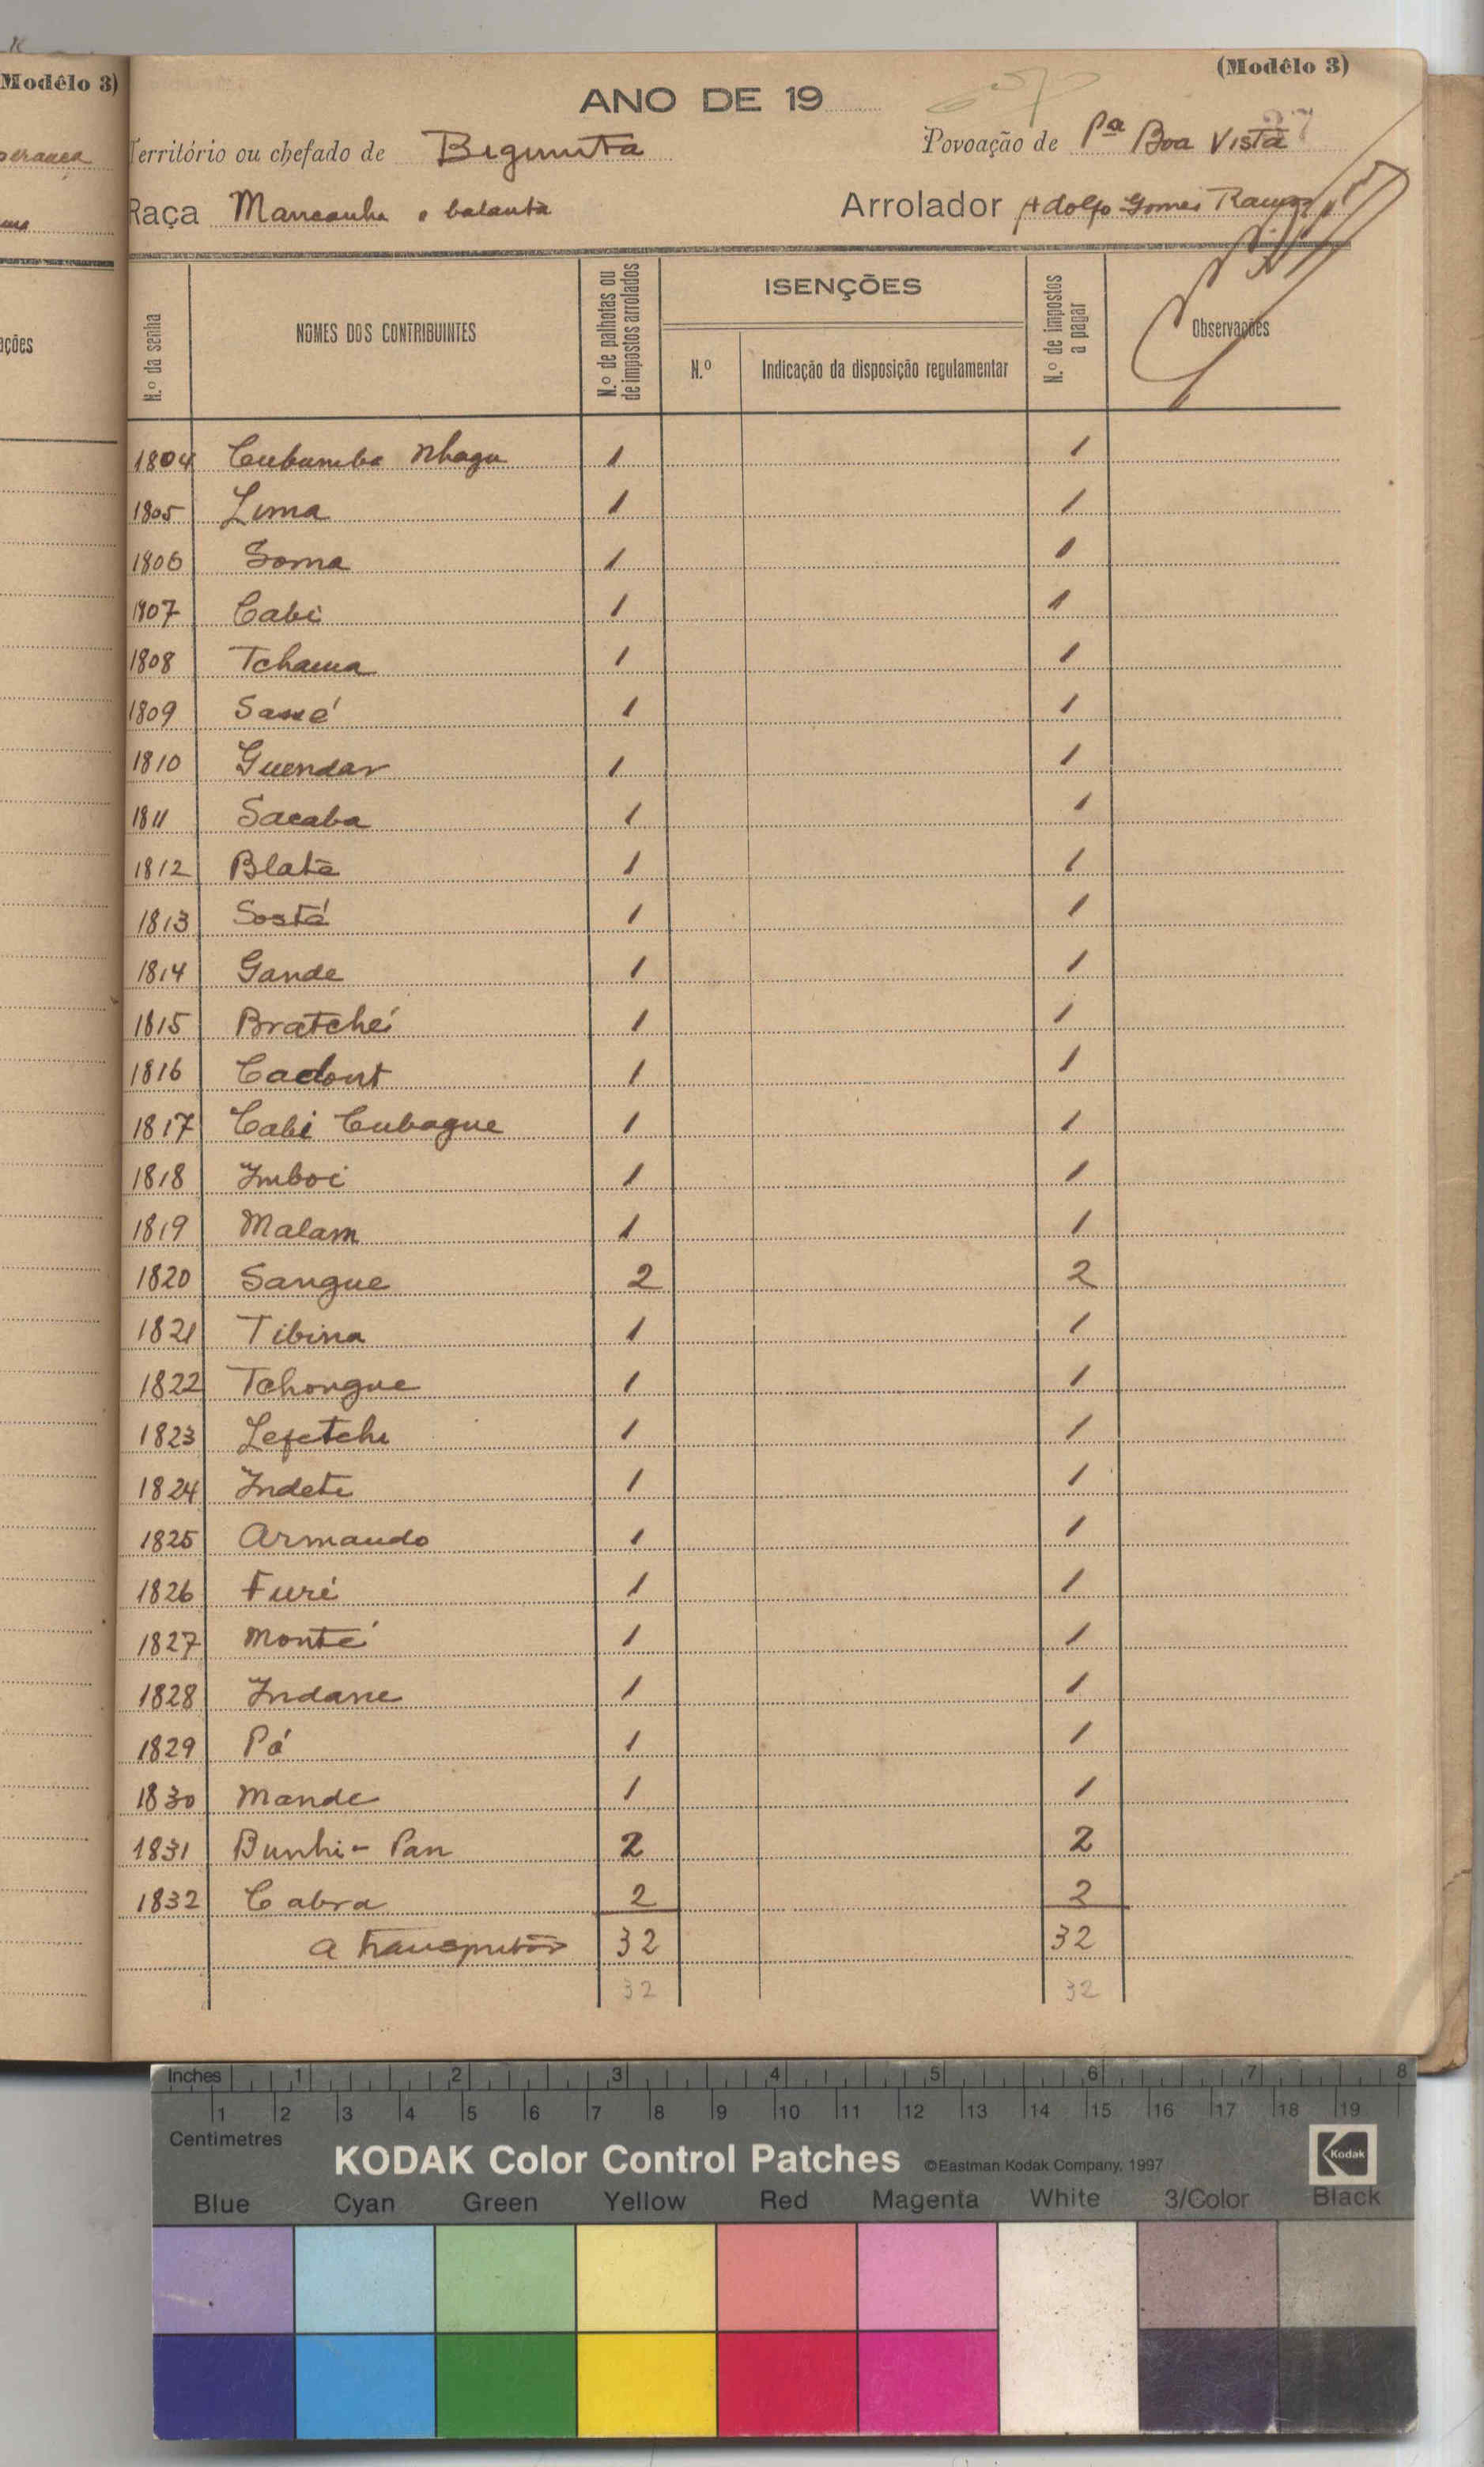 (Modêlo 3)
(Modêlo 3)
ANO DE 19
37
Território ou chefado de Bigimita
Povoação de Pª Boa Vista
Raça Mancanha e balanta
Arrolador Adolfo Gomes Ramos
ações
N.º da senha
NOMES DOS CONTRIBUINTES
N.º de palhotas ou de impostos arrolados
ISENÇÕES
N.º
Indicação da disposição regulamentar
N.º de impostos a pagar
Observações
1804 Cubumba Nhaga 1 1
1805 Lima 1 1
1806 Soma 1 1
1807 Cabi 1 1
1808 Tchama 1 1
1809 Sané 1 1
1810 Guendar 1 1
1811 Sacaba 1 1
1812 Blata 1 1
1813 Sostá 1 1
1814 Gande 1 1
1815 Bratché 1 1
1816 Cadont 1 1
1817 Cabi Cubague 1 1
1818 Imboi 1 1
1819 Malam 1 1
1820 Sangue 2 2
1821 Tibina 1 1
1822 Tchongue 1 1
1823 Lefetche 1 1
1824 Indete 1 1
1825 Armando 1 1
1826 Furé 1 1
1827 Monté 1 1
1828 Indane 1 1
1829 Pá 1 1
1830 Mande 1 1
1831 Bunhi - Pan 2 2
1832 Cabra 2 2
A transportar 32 32
32 32
Inches 1 2 3 4 5 6 7 8
1 2 3 4 5 6 7 8 9 10 11 12 13 14 15 16 17 18 19
Centimetres
KODAK Color Control Patches ©Eastman Kodak Company, 1997 Kodak
Blue Cyan Green Yellow Red Magenta White 3/Color Black